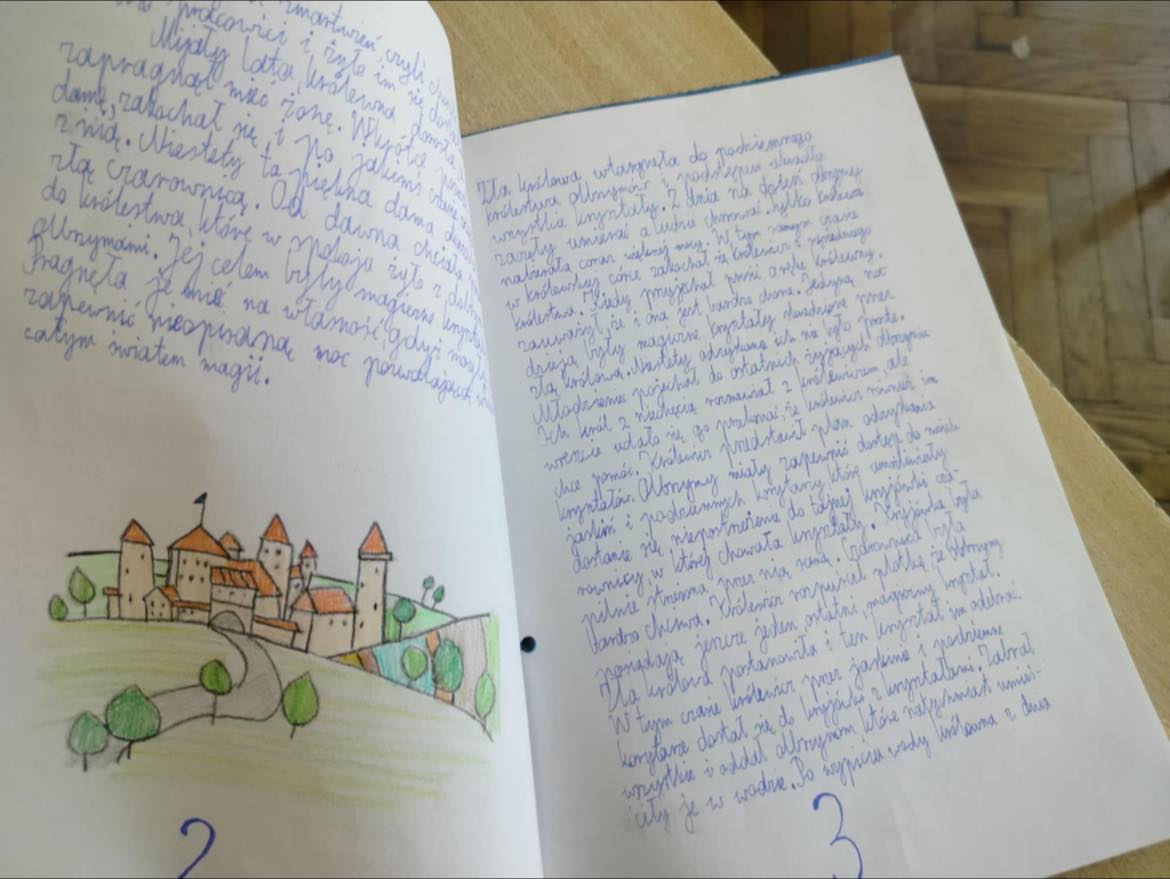 zmartwień, czyli
pracowici i żyło im się
Mijały lata, królewna
zapragnął mieć żonę. Wkrótce
damę, zakochał się i po jakimś
z nią. Niestety ta piękna dama
złą czarownicą. Od dawna chciała
do królestwa, które w spokoju żyło z
olbrzymami. Jej celem były magiczne
Pragnęła je mieć na własność, gdyż
zapewnić nieopisaną moc
całym światem magii.
2
Zła królowa wtargnęła do podziemnego
królestwa olbrzymów i podstępem skradła
wszystkie kryształy. Z dnia na dzień olbrzymy
zaczęły umierać a ludzie chorować. Tylko królowa
nabierała coraz większej mocy. W tym samym czasie
w królewskiej córce zakochał się królewicz z sąsiedniego
królestwa. Kiedy przyjechał prosić o rękę królewny,
zauważył, że i ona jest bardzo chora. Jedyną
były magiczne kryształy skradzione przez
złą królową. Niestety odzyskanie ich nie było proste.
Młodzieniec pojechał do ostatnich żyjących olbrzymów
Ich król z niechęcią rozmawiał z królewiczem, ale
wreszcie udało się go przekonać, że królewicz również im
chce pomóc. Królewicz przedstawił plan odzyskania
kryształów. Olbrzymy miały zapewnić dostęp do swoich
jaskiń i podziemnych korytarzy, które umożliwiały
dostanie się niepostrzeżenie do tajnej kryjówki cza-
rownicy, w której chowała kryształy. Kryjówka była
pilnie strzeżona przez nią samą. Czarownica była
bardzo chciwa. Królewicz rozpuścił plotkę, że olbrzymy
posiadają jeszcze jeden, ostatni, magiczny kryształ.
Zła królowa postanowiła i ten kryształ im odebrać.
W tym czasie królewicz przez jaskinie i podziemne
korytarze dostał się do kryjówki z kryształami. Zabrał
wszystkie i oddał olbrzymom które natychmiast umieś-
ciły je w wodzie. Po wypiciu wody królewna z dnia
3